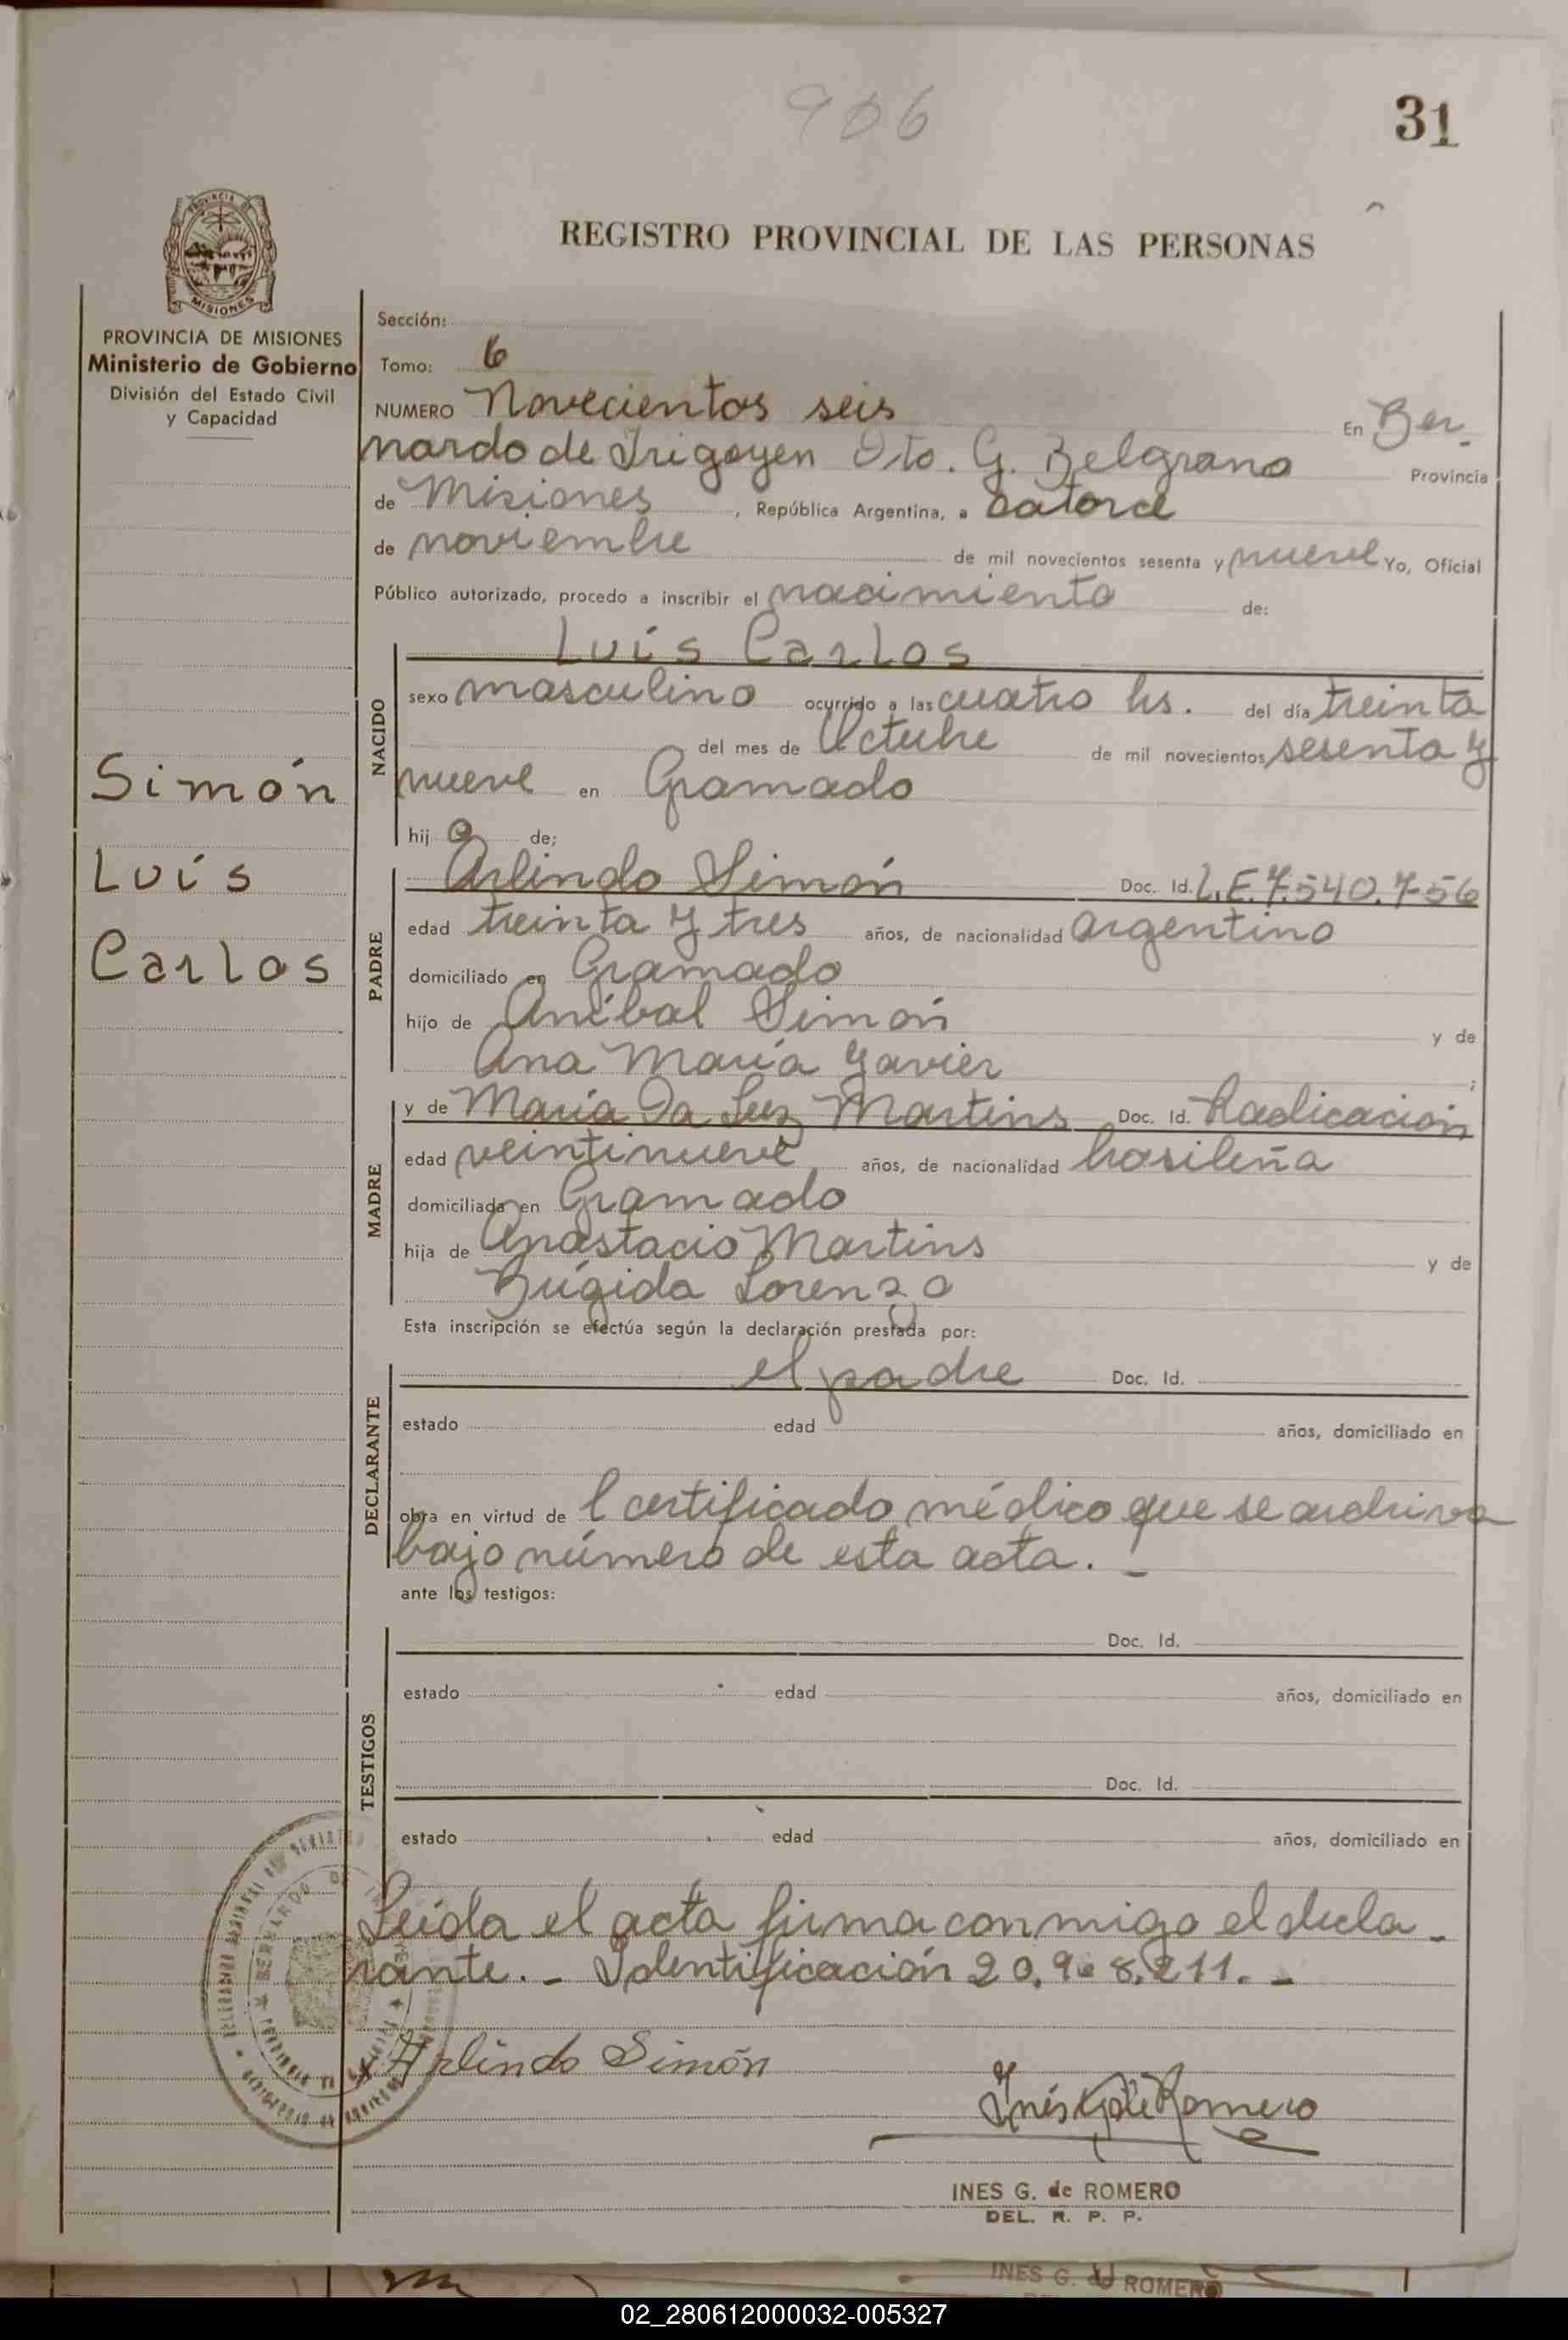 906
31
REGISTRO PROVINCIAL DE LAS PERSONAS
PROVINCIA DE MISIONES
MISIONES
PROVINCIA DE MISIONES
Ministerio de Gobierno
División del Estado Civil
y Capacidad
Simón
Luís
Carlos
Sección:
Tomo: 6
NUMERO Novecientos seis En Ber-
nardo de Irigoyen Dto. G. Belgrano Provincia
de Misiones, República Argentina, a catorce
de noviembre de mil novecientos sesenta y nueve Yo, Oficial
Público autorizado, procedo a inscribir el nacimiento de:
NACIDO
Luís Carlos
sexo masculino ocurrido a las cuatro hs. del día treinta
del mes de Octubre de mil novecientos sesenta y
nueve en Gramado
hij o de;
PADRE
Arlindo Simón Doc. Id. L.E.7.540.756
edad treinta y tres años, de nacionalidad argentino
domiciliado en Gramado
hijo de Aníbal Simón y de
Ana María Yavier ;
MADRE
y de María Da Luz Martins Doc. Id. Radicación
edad veintinueve años, de nacionalidad brasileña
domiciliada en Gramado
hija de Anastacio Martins y de
Brígida Lorenzo
Esta inscripción se efectúa según la declaración prestada por:
DECLARANTE
el padre Doc. Id.
estado edad años, domiciliado en
obra en virtud de l certificado médico que se archiva
bajo número de esta acta. -
ante los testigos:
TESTIGOS
Doc. Id.
estado edad años, domiciliado en
Doc. Id.
estado edad años, domiciliado en
Leída el acta firma conmigo el decla-
rante. - Identificación 20.908.211. -
x Arlindo Simón
Inés G de Romero
INES G. de ROMERO
DEL. R. P. P.
INES G. de ROMERO
02_280612000032-005327